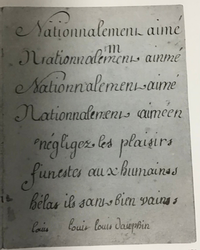 Nationnalement aimé
m
Nationnalement aimmé
Nationnalement aimé
Nationnalement aiméen
négligez les plaisirs
funestes aux humains
hélas ils sans bien vains
louis louis louis dauphin